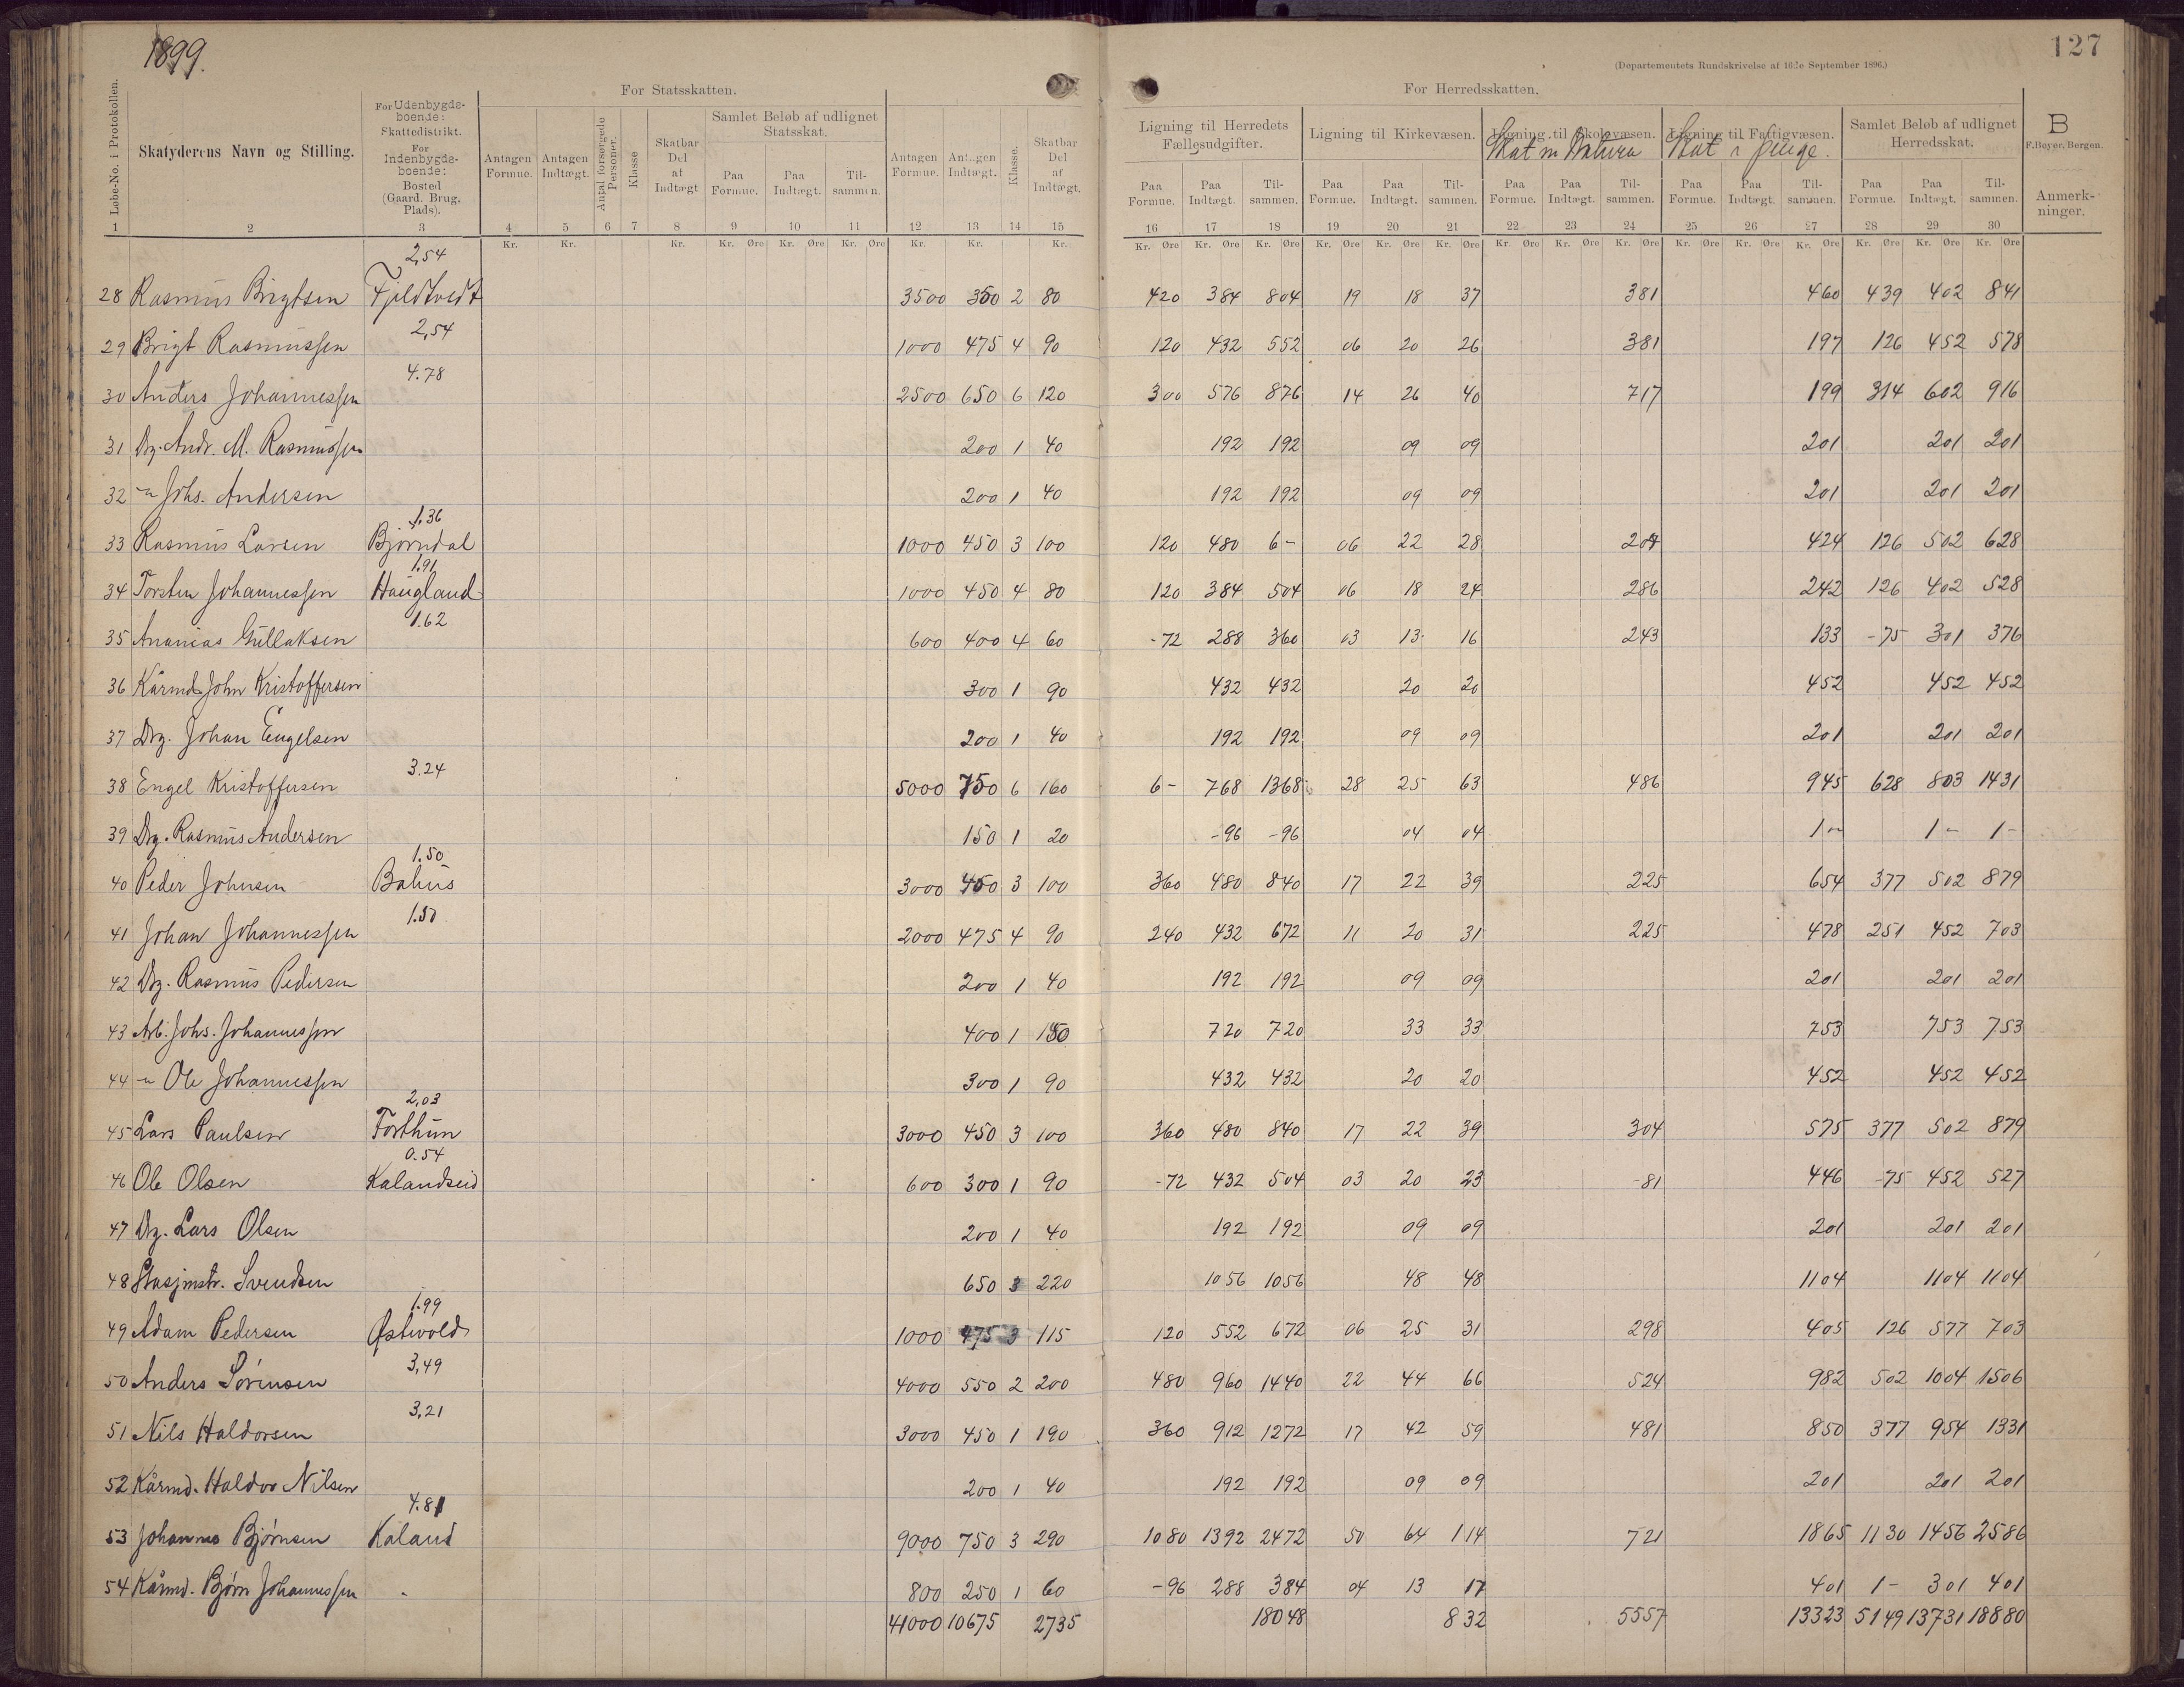 1899.
127
(Departementets Rundskrivelse af 16de September 1896.)
For Statsskatten.
For Herredsskatten.
Løbe-No. i Protokollen.
Skatyderens Navn og Stilling.
For Udenbygdsboende: Skattedistrikt. For Indenbygdsboende: Bosted (Gaard, Brug, Plads).
Antagen Formue.
Antagen Indtægt.
Antal forsørgede Personer.
Klasse
Skatbar Del af Indtægt
Samlet Beløb af udlignet Statsskat.
Paa Formue. Paa Indtægt. Tilsammen.
Antagen Formue. Antagen Indtægt. Klasse. Skatbar Del af Indtægt.
Ligning til Herredets Fællesudgifter.
Ligning til Kirkevæsen.
Ligning til Skolevæsen.
Skat in Natura
Ligning til Fattigvæsen.
Skat i Penge.
Samlet Beløb af udlignet Herredsskat.
B
F. Beyer, Bergen.
Anmerkninger.
Paa Formue. Paa Indtægt. Tilsammen. Paa Formue. Paa Indtægt. Tilsammen. Paa Formue. Paa Indtægt. Tilsammen. Paa Formue. Paa Indtægt. Tilsammen. Paa Formue. Paa Indtægt. Tilsammen.
1 2 3 4 5 6 7 8 9 10 11 12 13 14 15 16 17 18 19 20 21 22 23 24 25 26 27 28 29 30
Kr. Kr. Kr. Kr. Øre Kr. Øre Kr. Øre Kr. Kr. Kr. Kr. Øre Kr. Øre Kr. Øre Kr. Øre Kr. Øre Kr. Øre Kr. Øre Kr. Øre Kr. Øre Kr. Øre Kr. Øre Kr. Øre Kr. Øre Kr. Øre Kr. Øre
2,54
28 Rasmus Brigtsen Fjeldtvedt 3500 350 2 80 420 384 804 19 18 37 381 460 439 402 841
2,54
29 Brigt Rasmussen 1000 475 4 90 120 432 552 06 20 26 381 197 126 452 578
4.78
30 Anders Johannessen 2500 650 6 120 300 576 876 14 26 40 717 199 314 602 916
31 Drg. Andr. M. Rasmussen 200 1 40 192 192 09 09 201 201 201
32 " Johs. Andersen 200 1 40 192 192 09 09 201 201 201
1.36
33 Rasmus Larsen Bjørndal 1000 450 3 100 120 480 6- 06 22 28 204 424 126 502 628
1.91
34 Torsten Johannessen Haugland 1000 450 4 80 120 384 504 06 18 24 286 242 126 402 528
1.62
35 Ananias Gullaksen 600 400 4 60 -72 288 360 03 13 16 243 133 -75 301 376
36 Kårmd. John Kristoffersen 300 1 90 432 432 20 20 452 452 452
37 Drg. Johan Engelsen 200 1 40 192 192 09 09 201 201 201
3.24
38 Engel Kristoffersen 5000 750 6 160 6- 768 1368 28 25 63 486 945 628 803 1431
39 Drg. Rasmus Andersen 150 1 20 -96 -96 04 04 1- 1- 1-
1.50
40 Peder Johnsen Bahus 3000 450 3 100 360 480 840 17 22 39 225 654 377 502 879
1.50
41 Johan Johannessen 2000 475 4 90 240 432 672 11 20 31 225 478 251 452 703
42 Drg. Rasmus Pedersen 200 1 40 192 192 09 09 201 201 201
43 Arb. Johs. Johannessen 400 1 150 720 720 33 33 753 753 753
44 " Ole Johannessen 300 1 90 432 432 20 20 452 452 452
2,03
45 Lars Paulsen Forthun 3000 450 3 100 360 480 840 17 22 39 304 575 377 502 879
0.54
46 Ole Olsen Kalandseid 600 300 1 90 -72 432 504 03 20 23 -81 446 -75 452 527
47 Drg. Lars Olsen 200 1 40 192 192 09 09 201 201 201
48 Stasjmstr. Svendsen 650 3 220 1056 1056 48 48 1104 1104 1104
1.99
49 Adam Pedersen Østevold 1000 475 3 115 120 552 672 06 25 31 298 405 126 577 703
3,49
50 Anders Sörensen 4000 550 2 200 480 960 1440 22 44 66 524 982 502 1004 1506
3,21
51 Nils Haldorsen 3000 450 1 190 360 912 1272 17 42 59 481 850 377 954 1331
52 Kårmd. Haldor Nilsen 200 1 40 192 192 09 09 201 201 201
4.81
53 Johannes Bjørnsen Kaland 9000 750 3 290 1080 1392 2472 50 64 114 721 1865 1130 1456 2586
54 Kårmd. Bjørn Johannessen - 800 250 1 60 -96 288 384 04 13 17 401 1- 301 401
41000 10675 2735 18048 832 5557 13323 5149 13731 18880